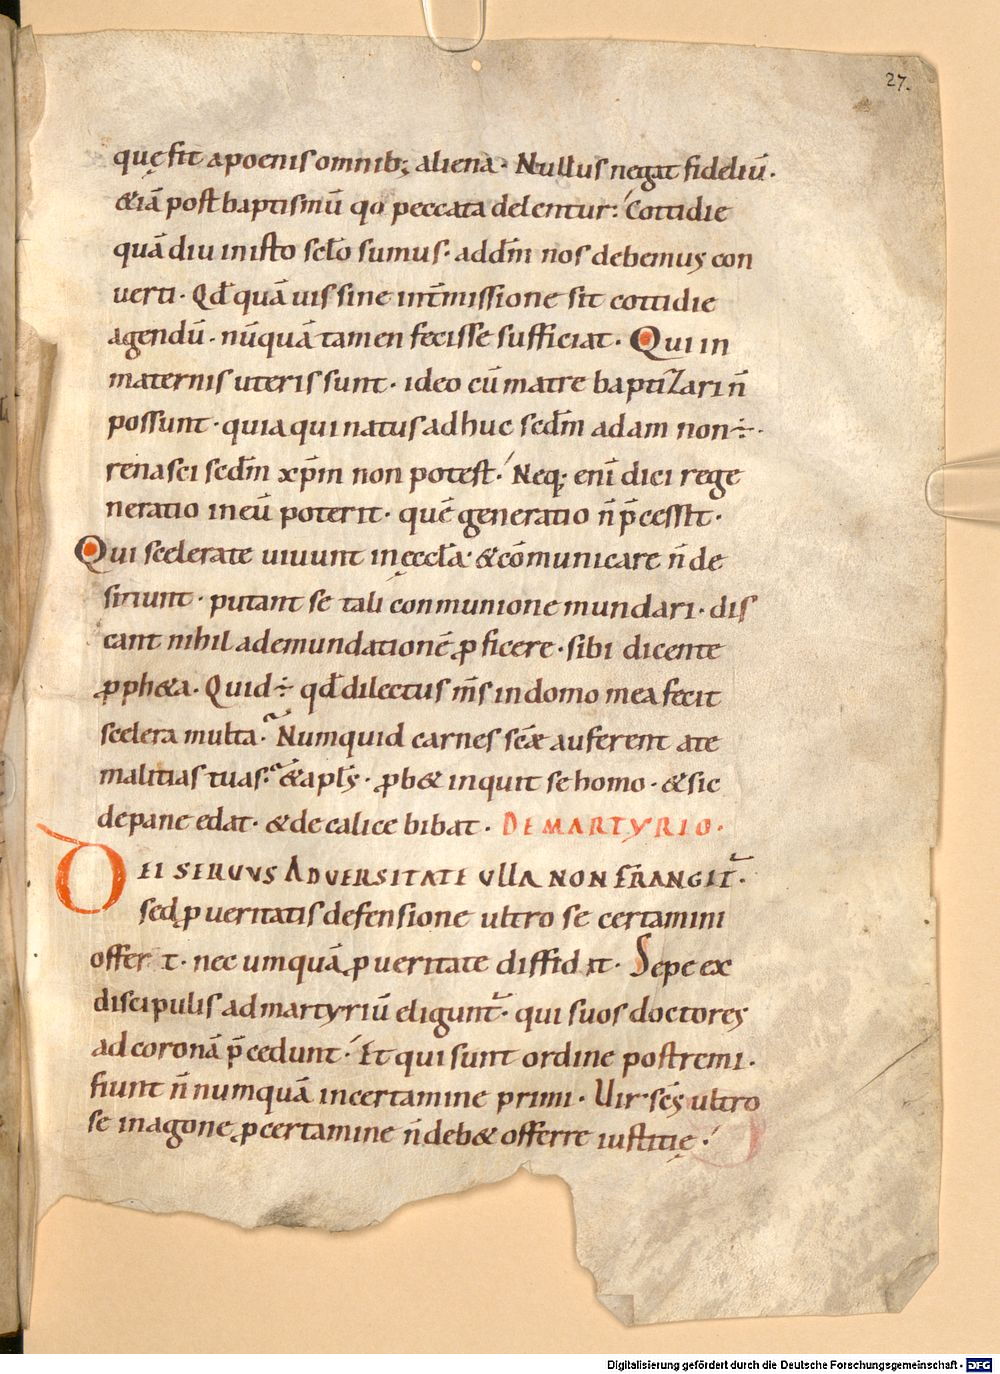 27.
quę fit a poenis omnib; aliena· Nullus negat fideliū·
&iā post baptismū qo peccata delentur:́ Cottidie
quādiu in isto sclo sumus· ad dm̄ nos debemus con
uerti· Qd̄ quāuis sine int̄missione sit cottidie
agendū· nūquā tamen fecisse sufficiat· Qui in
maternis uteris sunt· ideo cū matre baptizari n̄
possunt· quia qui natus adhuc sedm̄ adam non ÷·
renasci sedm̄ xp̄m non potest·́ Neq; eni dici rege
neratio in eū poterit· quē generatio n̄ p̄cessit·
Qui scelerate uiuunt in ęccl̄a & cōmunicare n̄ de
sinunt· putant se tali conmunione mundari· dis
cant nihil ad emundationē ꝓficere· sibi dicente
ꝓph&a· Quid ÷ qd̄ dilectus m̄s in domo mea fecit
scelera multa· Numquid carnes scæ auferent a te
malitias tuas· & apl̄s· ꝓb& inquit se homo· & sic
de pane edat· & de calice bibat· DE MARTYRIO·
DEI SERUUS ADUERSITATE ULLA NON FRANGIT·
sed ꝓ ueritatis defensione ultro se certamini
offer t· nec umquā ꝓ ueritate diffid it· Sepe ex
discipulis ad martyriū eligunt· qui suos doctores
ad coronā p̄cedunt·́ Et qui sunt ordine postremi·
fiunt n̄numquā in certamine primi· Uir scs̄ ultro
se in agone ꝓ certamine n̄ deb& offerre iustitię·́
Digitalisierung gefördert durch die Deutsche Forschungsgemeinschaft - DFG